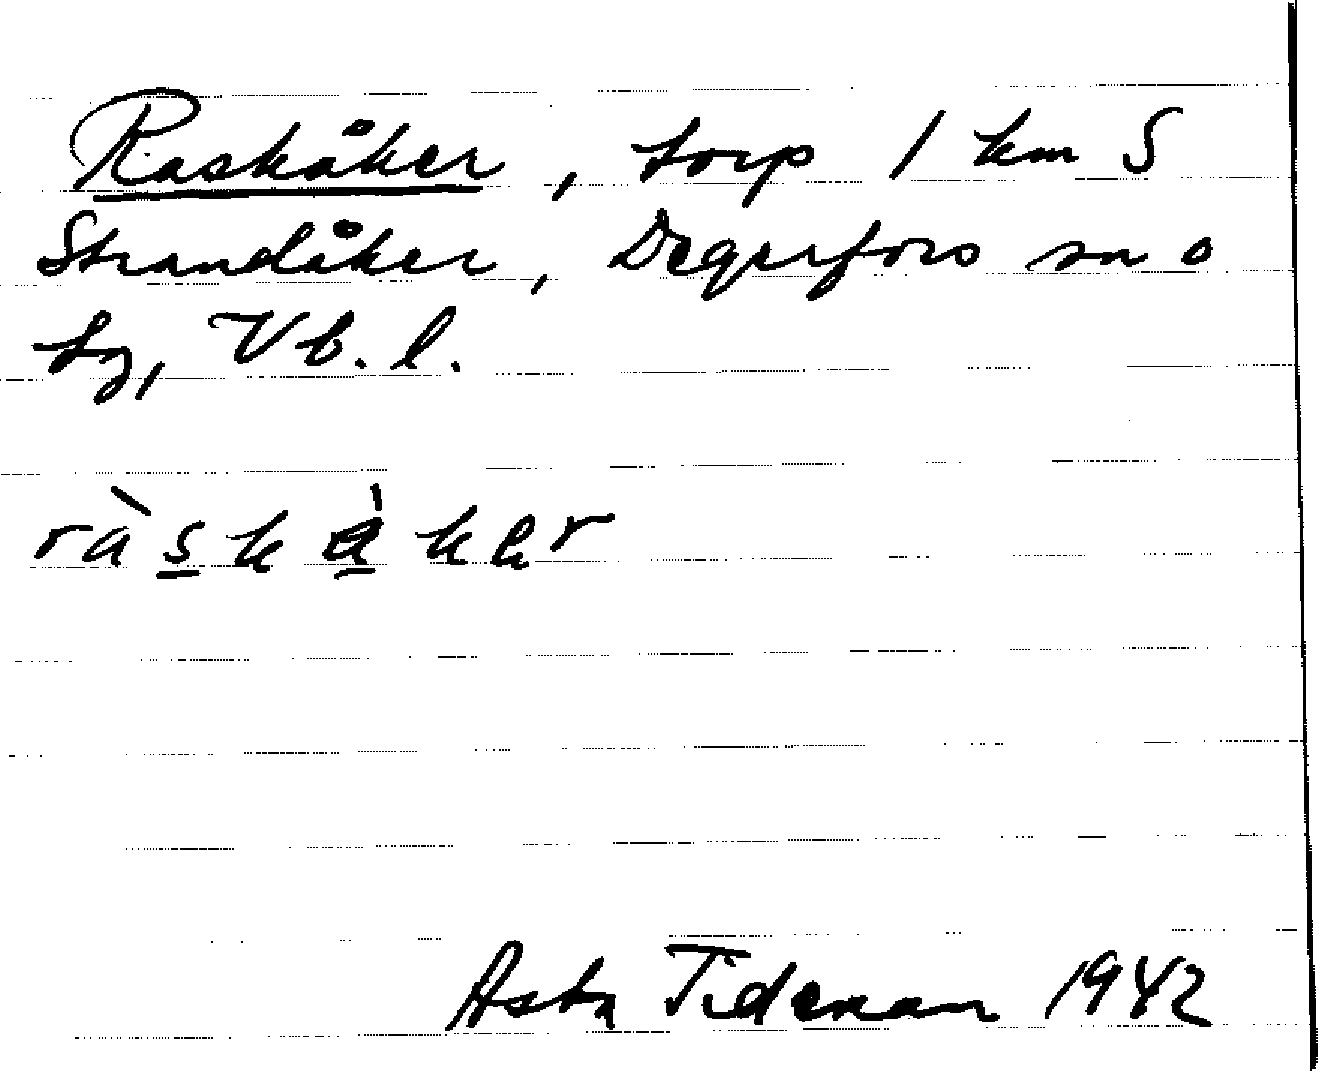 Raskåker, torp 1 km S
Strandåker, Degerfors sn o
tg, Vb. l.
ràskàkër
Asta Tideman 1942